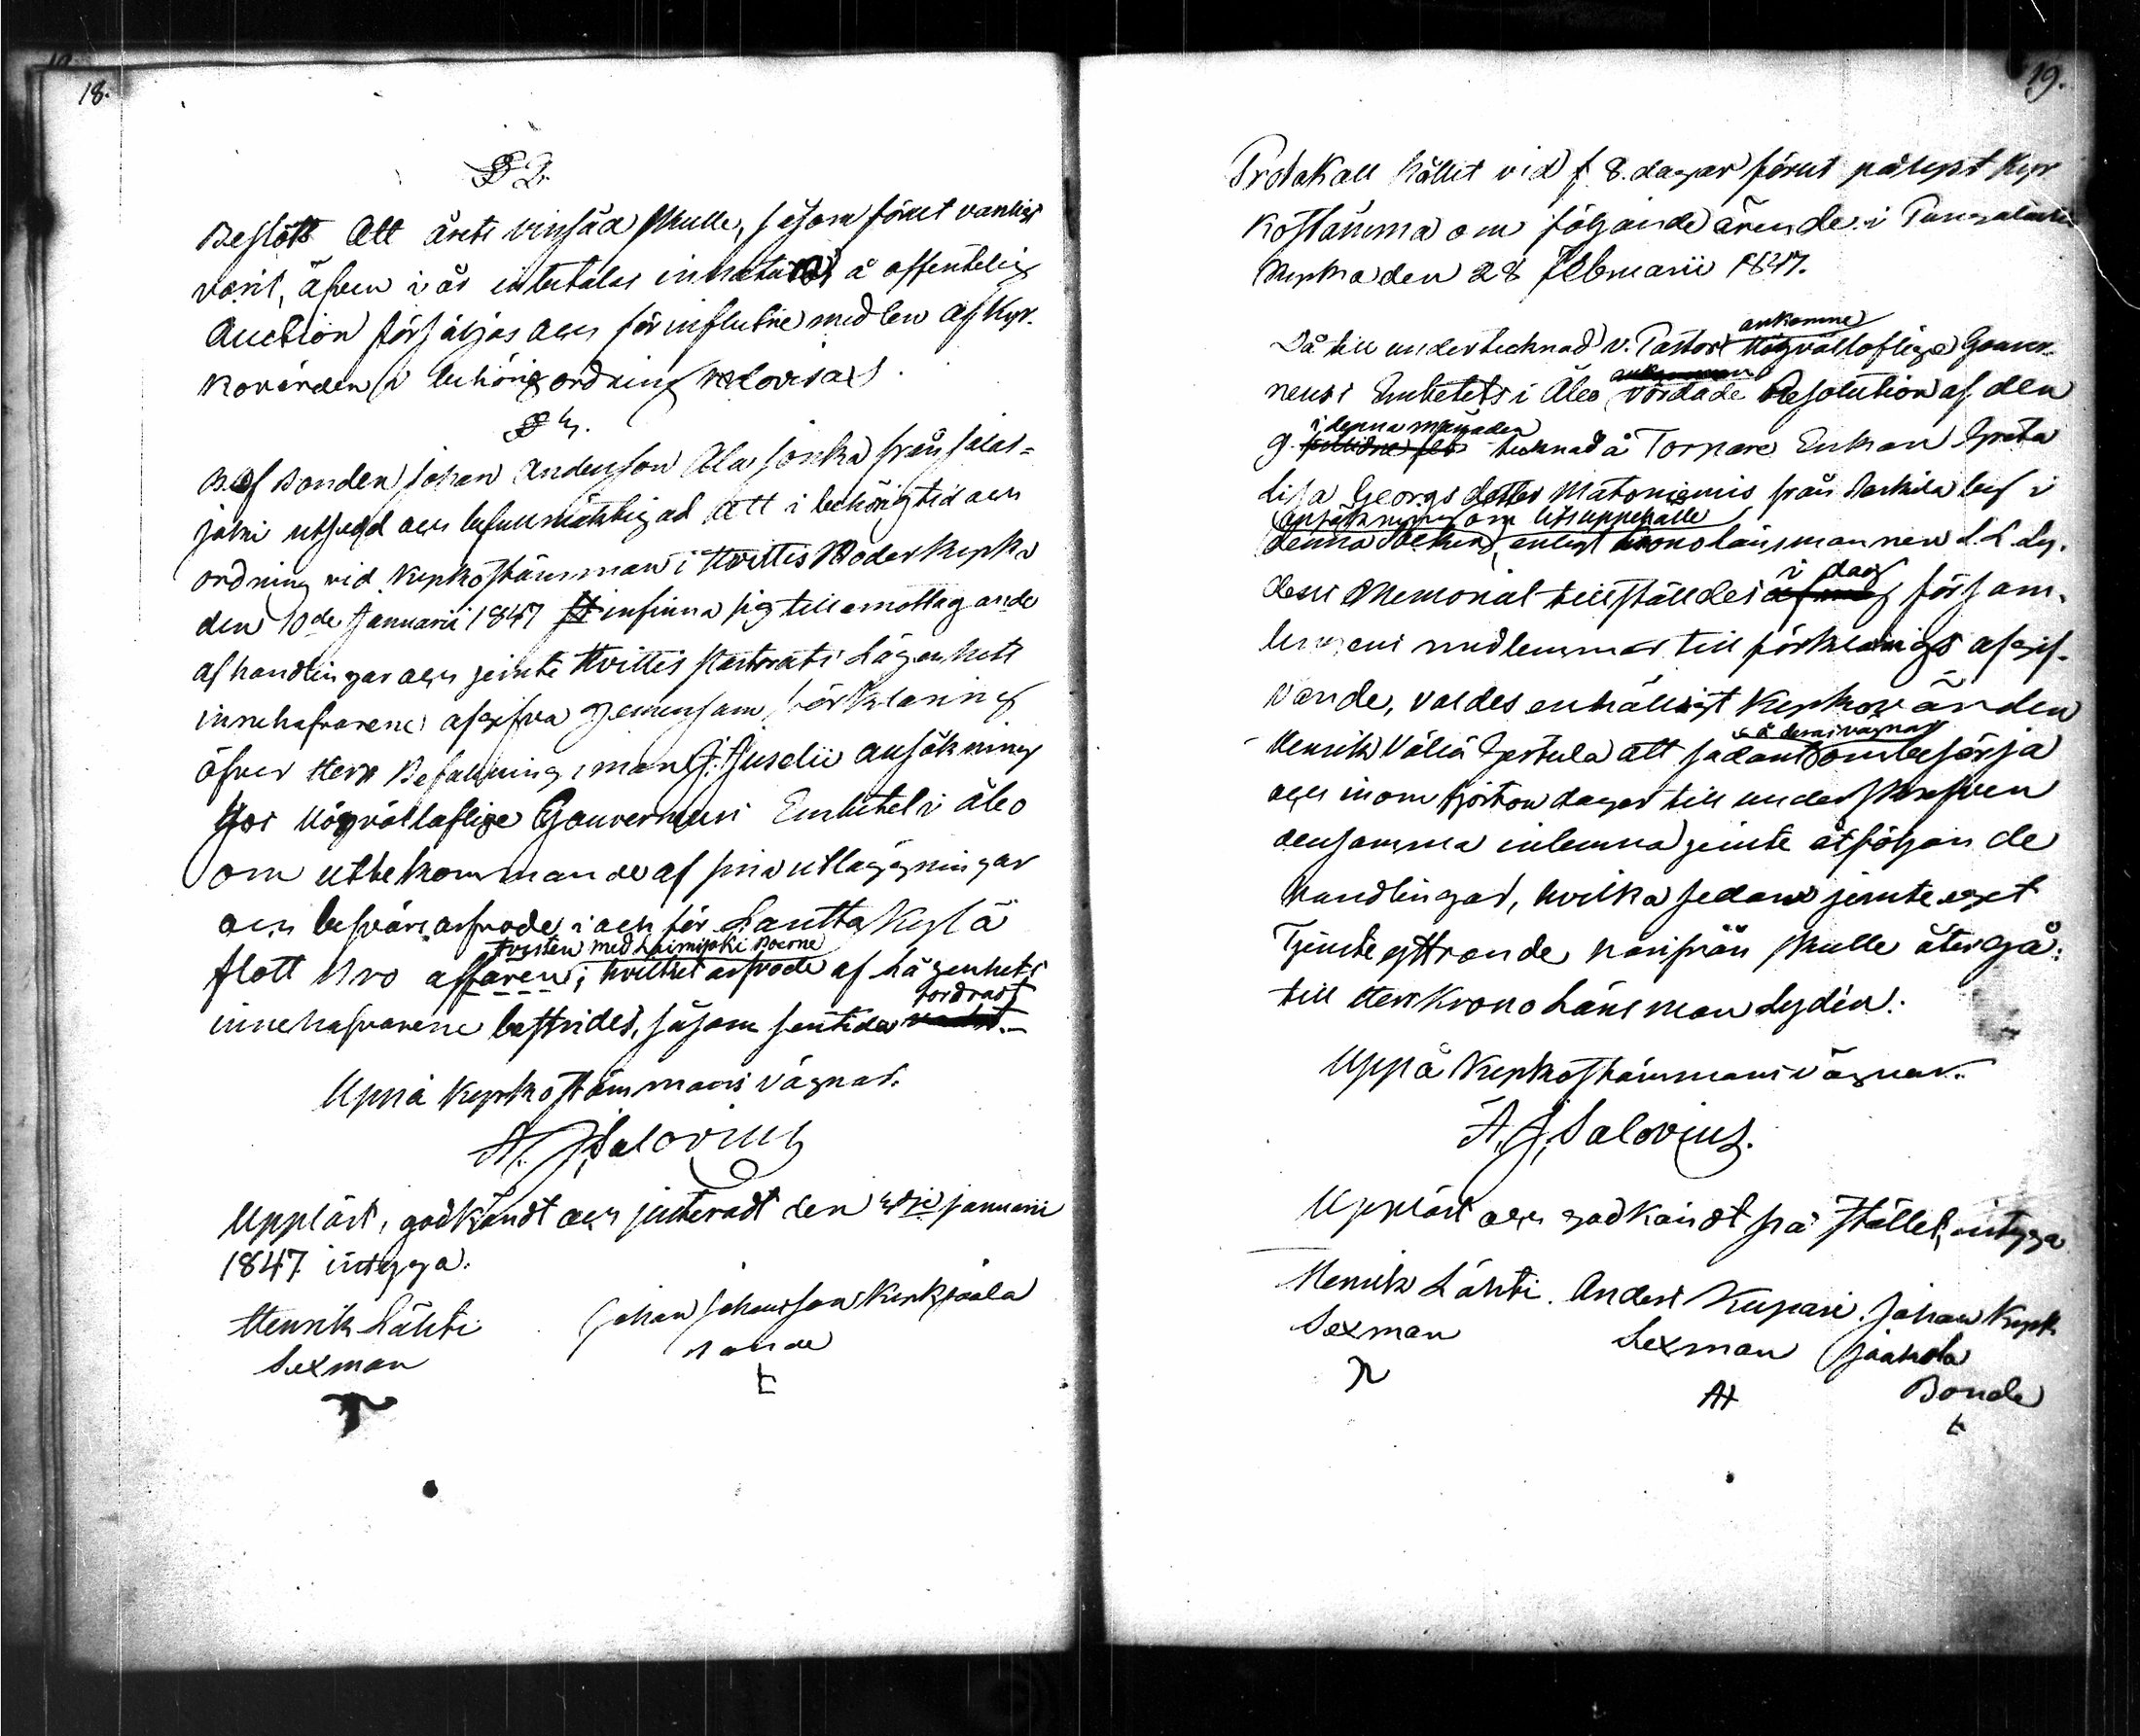 18.
§ 3.
Beslöts Att årets vinsäd skulle, såsom förut vanligt
varit, äfven i år å offentelig
Auction försäljas och för influtne medlen af Kyr-
kovärden i behörig ordning redovisas.
§ 4.
Bef Bonden Johan Andersson Ala Jonka från Salas-
joki utsågd och befullmäktigad att i behörig tid och
ordning vid Kyrkostämman i Hvittis Moderkyrka
den 10de Januarii 1847 infinna sig till emottagande
af handlingar och jemte Hvittis Pastorats Lägenhets
innehafvarene afgifva gemensam förklaring
öfver Herr Befallningsman G. Juselii ansökning
hos Högvälloflige Gouverneurs Embetet i Åbo
om utbekommande af sina utläggningar
och besvärs arfvode i och för Lauttakylä
tvisten med Loimijoki Boerne
flott bro affären; hvilket arfvode af Lägenhets
fordrast
innehafvarene bestrides, såsom
Uppå Kyrkostämmans vägnar.
A. J. Salovius
Uppläst, godkändt och justeradt den 4die januarii
1847 intyga.
Henrik Lähti Johan Johansson Kyrkjaala
Sexman Bonde
19.
Protokoll hållit vid 8. dagar förut pålyst Kyr
kostämma om följande ärende i Pungalaitio
Kyrka den 28 Februarii 1847.
ankomne
Då till undertecknad v. Pastor Högvälloflige Gouver-
neurs Embetets i Åbo vördade Resolution af den
i denna månaden
9. tecknad å Torpare Enkan Greta
Lisa Georgs dotter Matoniemis från by i
ansökning om lifsuppehälle
denna Socken, enligt Kronolänsmannen L. L. Ly-
i dag
dens Memorial tillställdes försam-
lingens medlemmar till förklarings afgif-
vande, valdes enhälligt Kyrkovärden
å deras vägnar
Henrik Väliä Yrttula att sådant ombesörja
och inom fjorton dagar till underskrefven
densamma inlemna jemte åtföljande
handlingar, hvilka sedan jemte eget
Tjenste yttrande härifrån skulle återgå
till Herr Krono Länsman Lydén.
Uppå Kyrkostämmans vägnar.
A. J. Salovius.
Uppläst och godkändt på stället, intyga
Henrik Lähti. Anders Kupari. Johan Kyrk
Sexman Sexman jaakola
Bonde